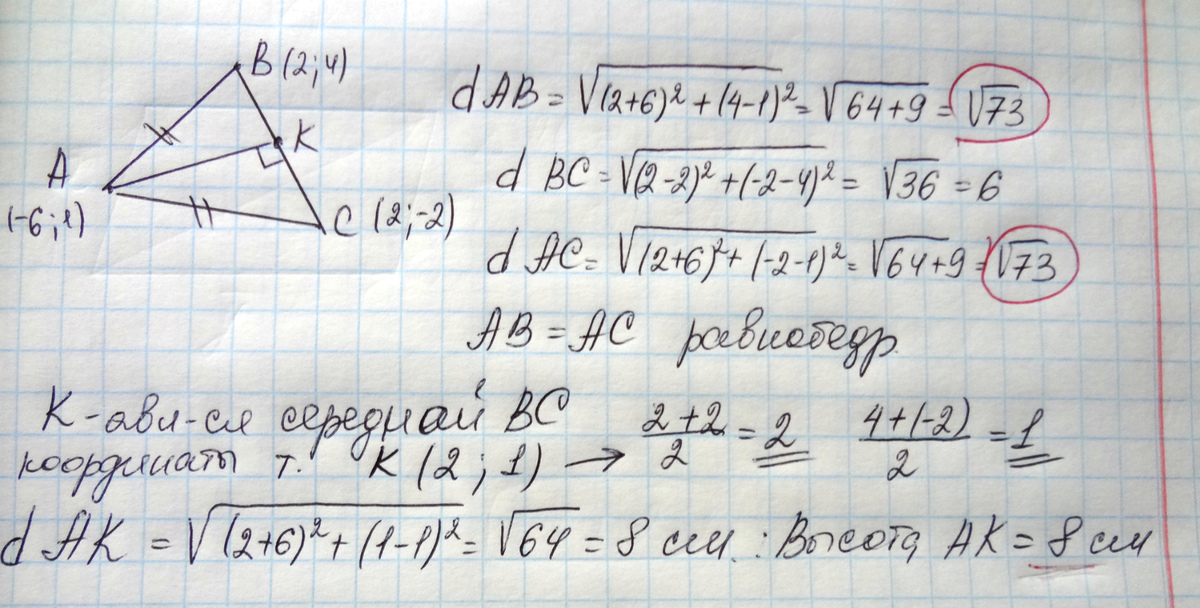 B (2;4)
K
A
(-6;1)
C (2;-2)
d AB = √(2+6)² + (4-1)² = √64+9 = √73
d BC = √(2-2)² + (-2-4)² = √36 = 6
d AC = √(2+6)² + (-2-1)² = √64+9 = √73
AB = AC равнобедр.
K-явл-ся серединой BC
координаты т. K (2; 1) → 2+2/2 = 2 4+(-2)/2 = 1
d AK = √(2+6)² + (1-1)² = √64 = 8 см. : Высота AK = 8 см